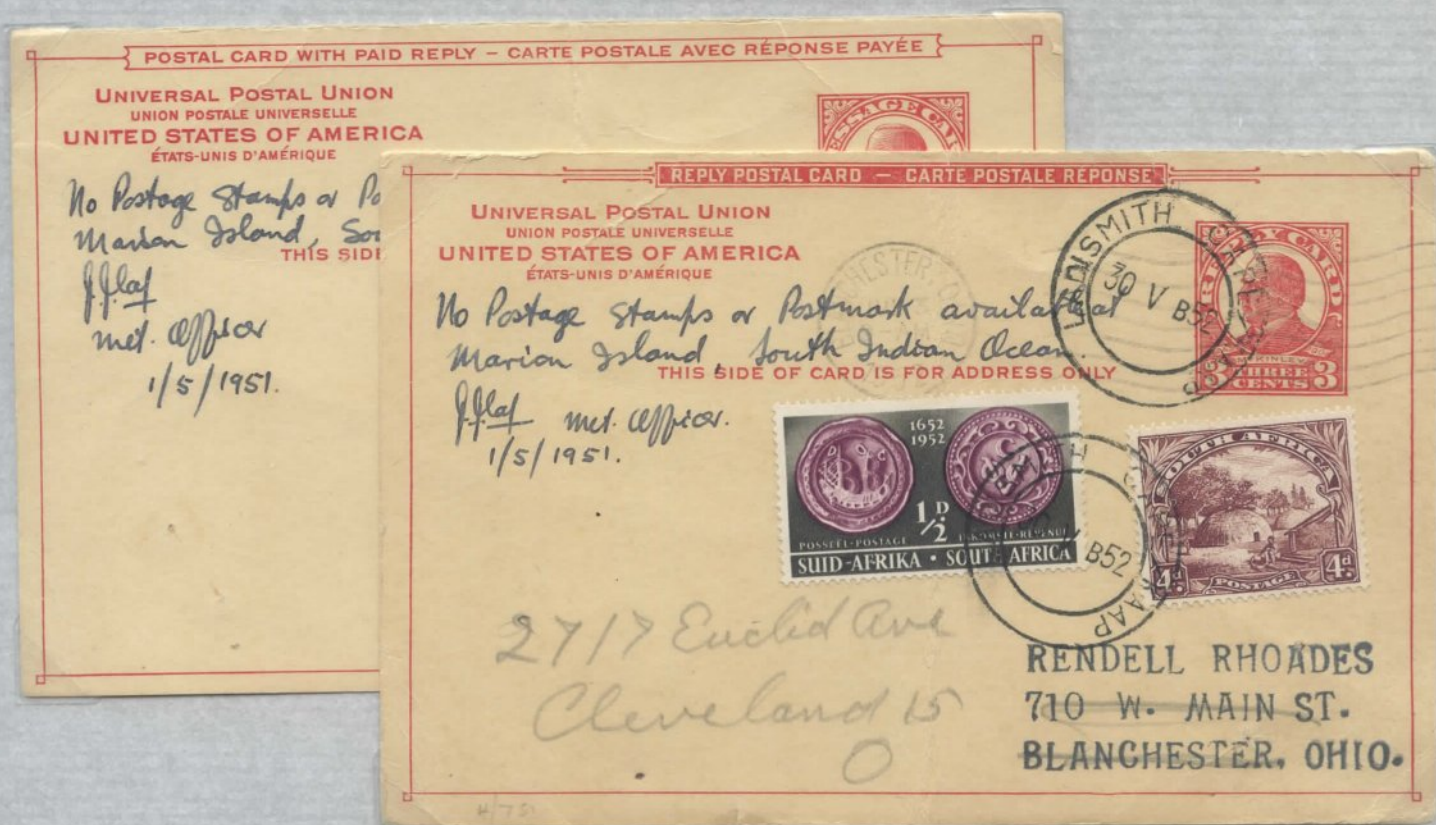 POSTAL CARD WITH PAID REPLY – CARTE POSTALE AVEC RÉPONSE PAYÉE
UNIVERSAL POSTAL UNION
UNION POSTALE UNIVERSELLE
UNITED STATES OF AMERICA
ÉTATS-UNIS D'AMÉRIQUE
No Postage Stamps or Po
Marion Island, Sou
THIS SIDE
Met. Officer
1/5/1951.
REPLY POSTAL CARD — CARTE POSTALE RÉPONSE
UNIVERSAL POSTAL UNION
UNION POSTALE UNIVERSELLE
UNITED STATES OF AMERICA
ÉTATS-UNIS D'AMÉRIQUE
LADISMITH
30 V B52
REPLY CARD
McKINLEY
THREE
CENTS 3
No Postage Stamps or Postmark available at
Marion Island, South Indian Ocean.
THIS SIDE OF CARD IS FOR ADDRESS ONLY
Met. Officer.
1/5/1951.
1652
1952
1/2D
POSSEËL-POSTAGE INKOMSTE-REVENUE
SUID-AFRIKA • SOUTH AFRICA
B52
KAAP
SOUTH AFRICA
4d. POSTAGE 4d.
2717 Euclid Ave
Cleveland 15
O
RENDELL RHOADES
710 W. MAIN ST.
BLANCHESTER, OHIO.